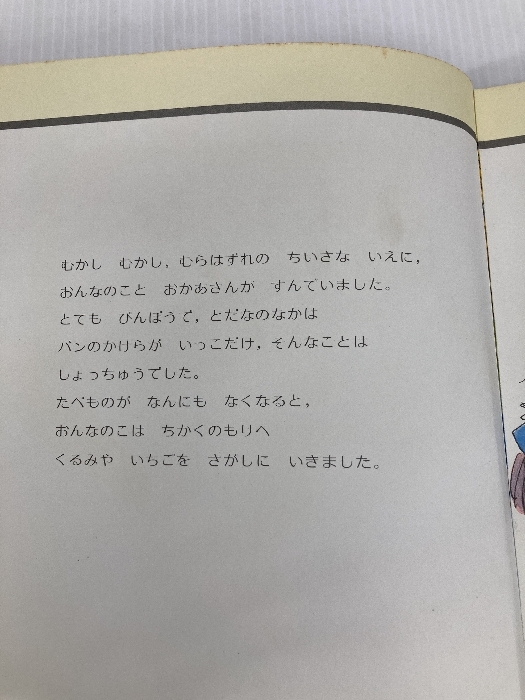 むかし　むかし，むらはずれの　ちいさな　いえに，
おんなのこと　おかあさんが　すんでいました。
とても　びんぼうで，とだなのなかは
パンのかけらが　いっこだけ，そんなことは
しょっちゅうでした。
たべものが　なんにも　なくなると，
おんなのこは　ちかくのもりへ
くるみや　いちごを　さがしに　いきました。